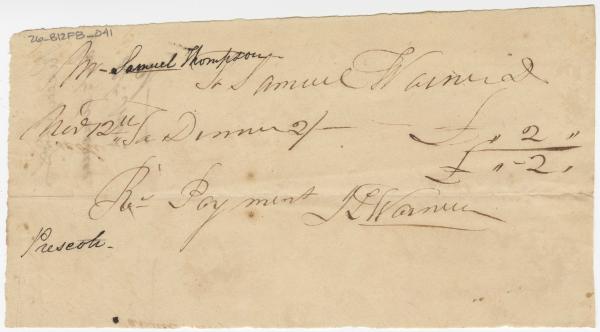 26_B12FB_041
Mr Samuel Thompson
To Samuel Warner Dr
Novr 12th To Dinner 2/— £ " 2 "
£ " -2 "
Recd Payment S Warner
Prescott